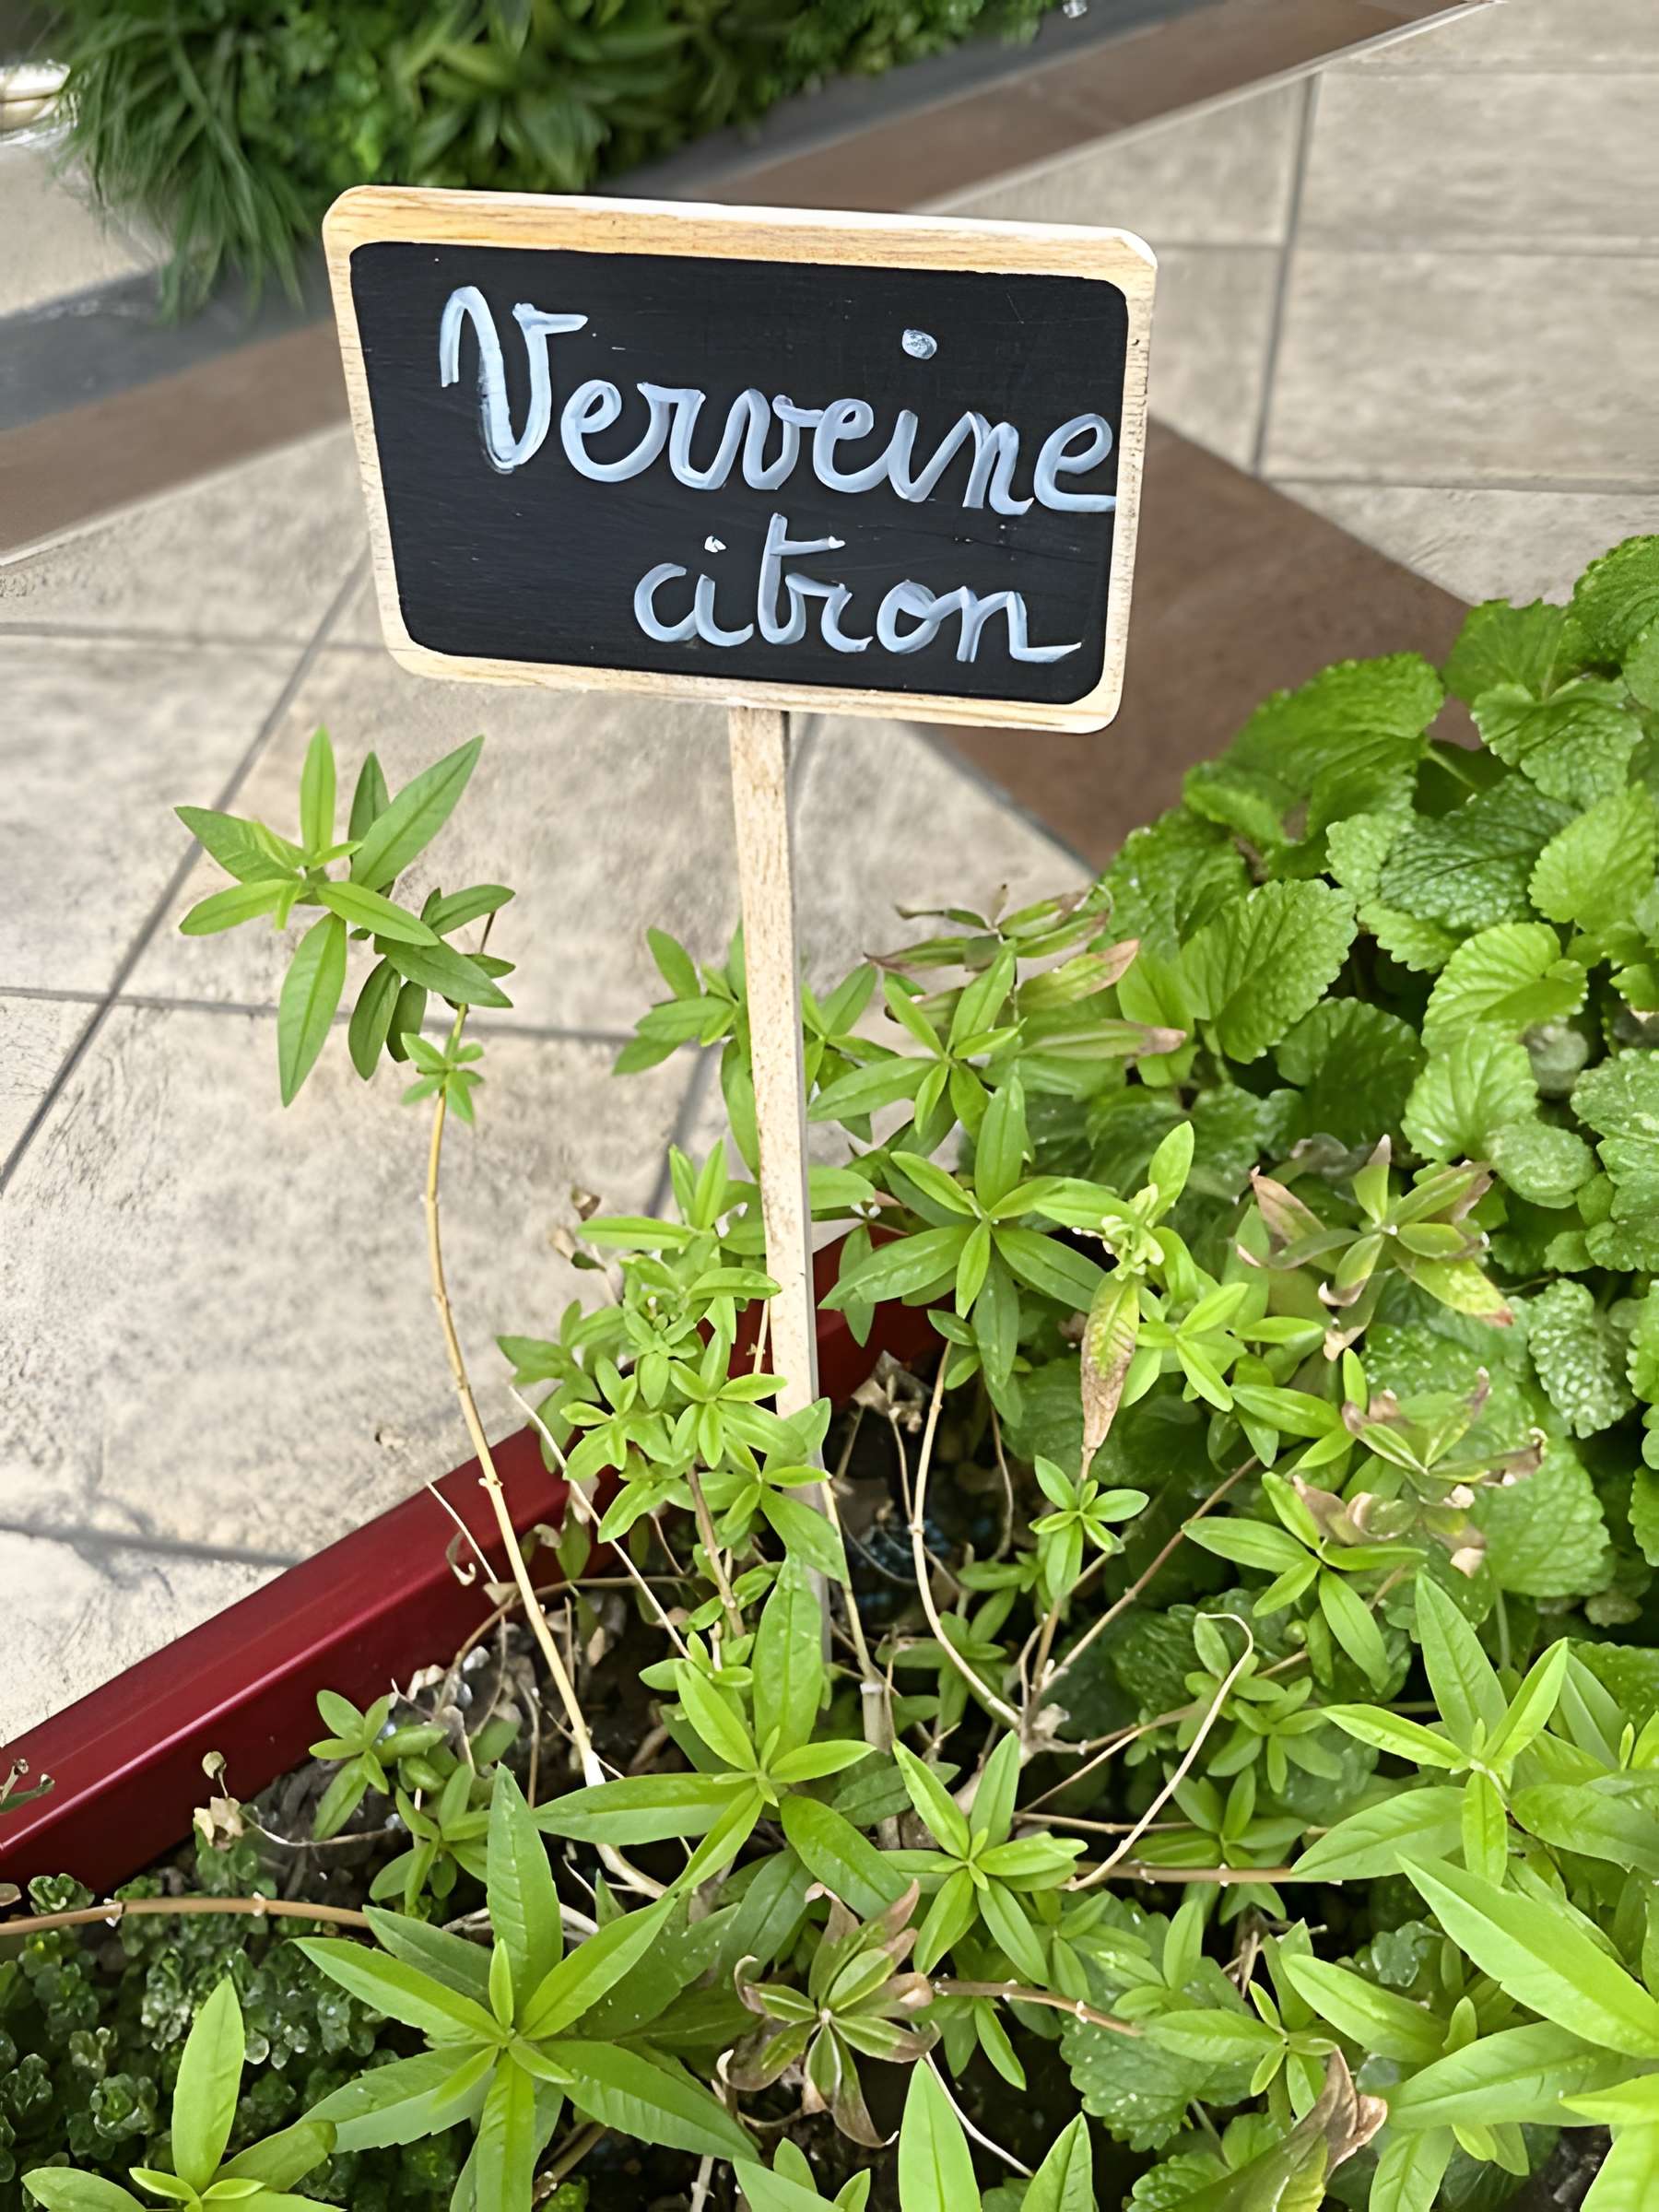 Verveine
citron